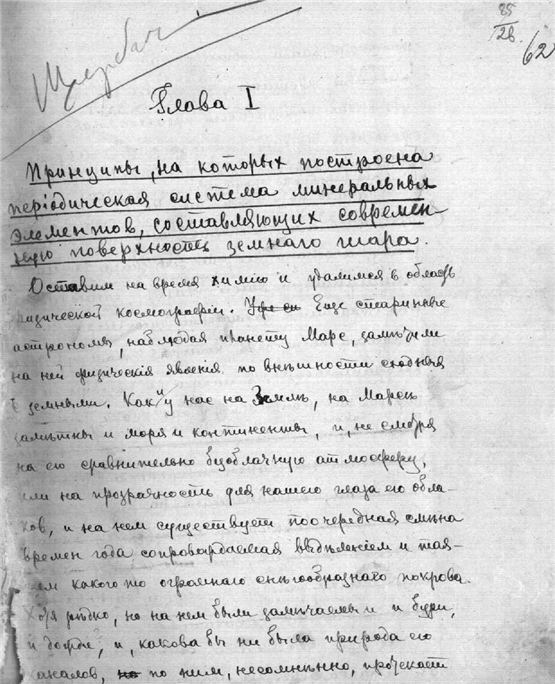 85
28
62
Глава I
Принципы, на которых построена
періодическая система минеральных
элементов, составляющих современ
ную поверхность земнаго шара.
Оставим на время химію и удалимся в область
физической космографіи. Еще старинные
астрономы, наблюдая планету Марс, замѣтили
на ней физическія явленія по внѣшности сходныя
с земными. Как и у нас на Землѣ, на Марсѣ
замѣтны и моря и континенты, и, не смотря
на его сравнительно безоблачную атмосферу,
или на прозрачность для нашего глаза его обла-
ков, и на нем существует поочередная смѣна
времен года сопровождаемая выдѣленіем и тая-
нием какого то огромнаго снѣгообразнаго покрова.
Хотя рѣдко, но на нем были замѣчаемы и бури,
и дожди, и, какова бы ни была природа его
каналов, по ним, несомнѣнно, протекает